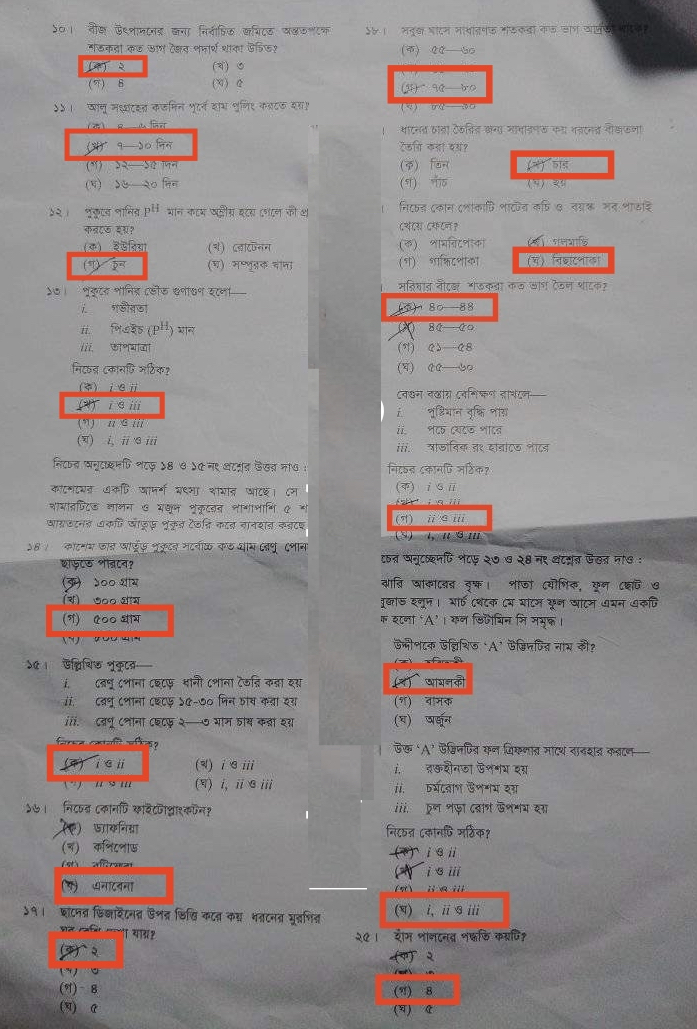 ১০। বীজ উৎপাদনের জন্য নির্বাচিত জমিতে অন্ততপক্ষে
শতকরা কত ভাগ জৈব পদার্থ থাকা উচিত?
(ক) ২ (খ) ৩
(গ) ৪ (ঘ) ৫
১১। আলু সংগ্রহের কতদিন পূর্বে হাম পুলিং করতে হয়?
(ক) ৪—৬ দিন
(খ) ৭—১০ দিন
(গ) ১২—১৫ দিন
(ঘ) ১৬—২০ দিন
১২। পুকুরে পানির pH মান কমে অম্লীয় হয়ে গেলে কী প্র
করতে হয়?
(ক) ইউরিয়া (খ) রোটেনন
(গ) চুন (ঘ) সম্পূরক খাদ্য
১৩। পুকুরে পানির ভৌত গুণাগুণ হলো—
i. গভীরতা
ii. পিএইচ (PH) মান
iii. তাপমাত্রা
নিচের কোনটি সঠিক?
(ক) i ও ii
(খ) i ও iii
(গ) ii ও iii
(ঘ) i, ii ও iii
নিচের অনুচ্ছেদটি পড়ে ১৪ ও ১৫ নং প্রশ্নের উত্তর দাও :
কাশেমের একটি আদর্শ মৎস্য খামার আছে। সে
খামারটিতে লালন ও মজুদ পুকুরের পাশাপাশি ৫ শ
আয়তনের একটি আঁতুড় পুকুর তৈরি করে ব্যবহার করছে
১৪। কাশেম তার আতুঁড় পুকুরে সর্বোচ্চ কত গ্রাম রেণু পোন
ছাড়তে পারবে?
(ক) ১০০ গ্রাম
(খ) ৩০০ গ্রাম
(গ) ৫০০ গ্রাম
১৫। উল্লিখিত পুকুরে—
i. রেণু পোনা ছেড়ে ধানী পোনা তৈরি করা হয়
ii. রেণু পোনা ছেড়ে ১৫-৩০ দিন চাষ করা হয়
iii. রেণু পোনা ছেড়ে ২—৩ মাস চাষ করা হয়
নিচের কোনটি সঠিক?
(ক) i ও ii (খ) i ও iii
(গ) ii ও iii (ঘ) i, ii ও iii
১৬। নিচের কোনটি ফাইটোপ্লাংকটন?
(ক) ড্যাফনিয়া
(খ) কপিপোড
(গ) রটিফেরা
(ঘ) এনাবেনা
১৭। ছাদের ডিজাইনের উপর ভিত্তি করে কয় ধরনের মুরগির
ঘর দেখা যায়?
(ক) ২
(খ) ৩
(গ) ৪
(ঘ) ৫
১৮। সবুজ ঘাসে সাধারণত শতকরা কত ভাগ আর্দ্রতা থাকে?
(ক) ৫৫—৬০
(গ) ৭৫—৮০
(ঘ) ৮৫—৯০
। ধানের চারা তৈরির জন্য সাধারণত কয় ধরনের বীজতলা
তৈরি করা হয়?
(ক) তিন (খ) চার
(গ) পাঁচ (ঘ) ছয়
। নিচের কোন পোকাটি পাটের কচি ও বয়স্ক সব পাতাই
খেয়ে ফেলে?
(ক) পামরিপোকা (খ) গলমাছি
(গ) গান্ধিপোকা (ঘ) বিছাপোকা
। সরিষার বীজে শতকরা কত ভাগ তৈল থাকে?
(ক) ৪০—৪৪
(খ) ৪৫—৫০
(গ) ৫১—৫৪
(ঘ) ৫৫—৬০
বেগুন বস্তায় বেশিক্ষণ রাখলে—
i. পুষ্টিমান বৃদ্ধি পায়
ii. পচে যেতে পারে
iii. স্বাভাবিক রং হারাতে পারে
নিচের কোনটি সঠিক?
(ক) i ও ii
(খ) i ও iii
(গ) ii ও iii
(ঘ) i, ii ও iii
চের অনুচ্ছেদটি পড়ে ২৩ ও ২৪ নং প্রশ্নের উত্তর দাও :
ঝারি আকারের বৃক্ষ। পাতা যৌগিক, ফুল ছোট ও
বুজাভ হলুদ। মার্চ থেকে মে মাসে ফুল আসে এমন একটি
ক হলো ‘A’। ফল ভিটামিন সি সমৃদ্ধ।
উদ্দীপকে উল্লিখিত ‘A’ উদ্ভিদটির নাম কী?
(ক) হরিতকী
(খ) আমলকী
(গ) বাসক
(ঘ) অর্জুন
। উক্ত ‘A’ উদ্ভিদটির ফল ত্রিফলার সাথে ব্যবহার করলে—
i. রক্তহীনতা উপশম হয়
ii. চর্মরোগ উপশম হয়
iii. চুল পড়া রোগ উপশম হয়
নিচের কোনটি সঠিক?
(ক) i ও ii
(খ) i ও iii
(গ) ii ও iii
(ঘ) i, ii ও iii
২৫। হাঁস পালনের পদ্ধতি কয়টি?
(ক) ২
(খ) ৩
(গ) ৪
(ঘ) ৫